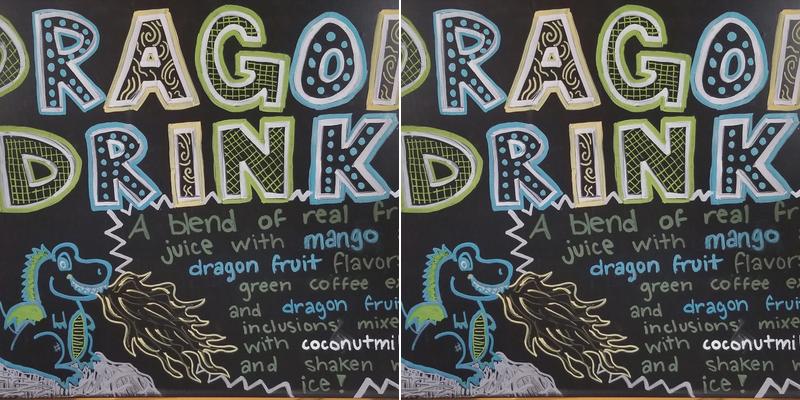 DRAGON
DRINK
A blend of real fr
juice with mango
dragon fruit flavor
green coffee e
and dragon frui
inclusions mixe
with coconutmi
and shaken w
ice!
DRAGON
DRINK
A blend of real fr
juice with mango
dragon fruit flavor
green coffee e
and dragon frui
inclusions mixe
with coconutmi
and shaken w
ice!